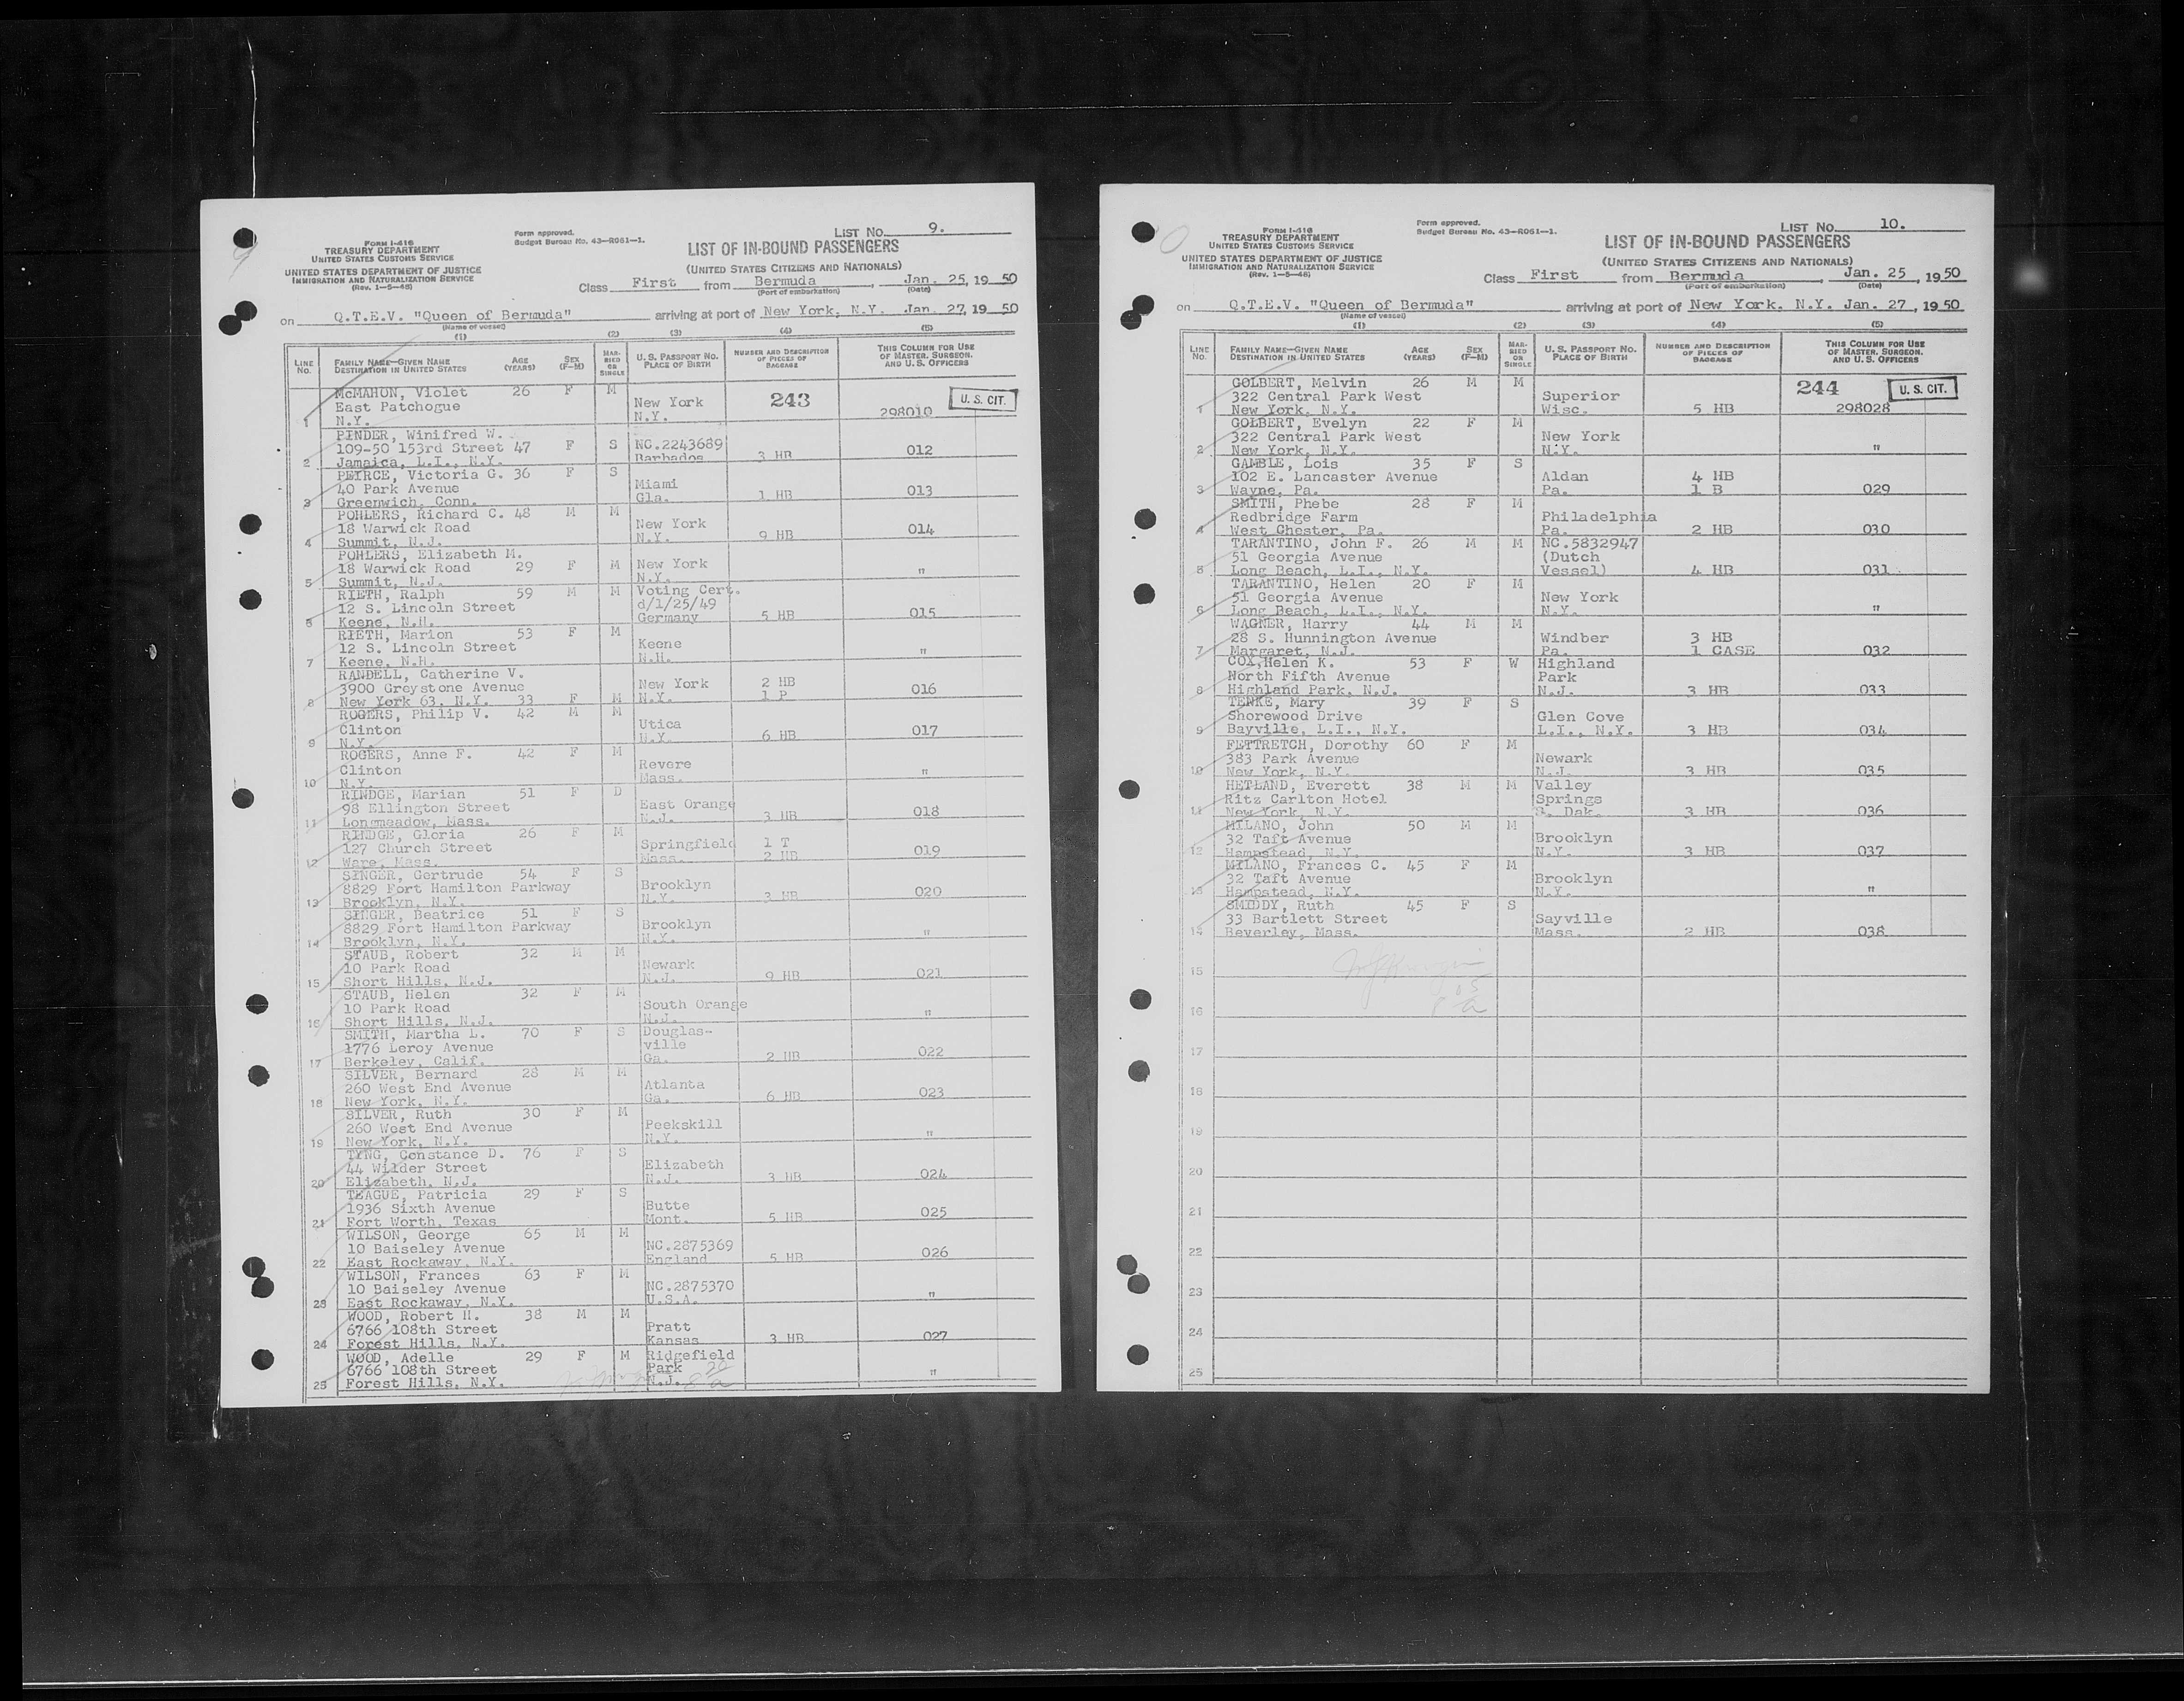 9
FORM I-416
TREASURY DEPARTMENT
UNITED STATES CUSTOMS SERVICE
UNITED STATES DEPARTMENT OF JUSTICE
IMMIGRATION AND NATURALIZATION SERVICE
(Rev. 1-5-48)
Form approved.
Budget Bureau No. 43-R061-1.
LIST No. 9.
LIST OF IN-BOUND PASSENGERS
(UNITED STATES CITIZENS AND NATIONALS)
Class First from Bermuda, Jan. 25, 19 50
(Port of embarkation) (Date)
on Q.T.E.V. "Queen of Bermuda" arriving at port of New York, N.Y. Jan. 27, 19 50
(Name of vessel)
(1) (2) (3) (4) (5)
LINE No. FAMILY NAME—GIVEN NAME DESTINATION IN UNITED STATES AGE (YEARS) SEX (F-M) MARRIED OR SINGLE U. S. PASSPORT NO. PLACE OF BIRTH NUMBER AND DESCRIPTION OF PIECES OF BAGGAGE THIS COLUMN FOR USE OF MASTER, SURGEON, AND U. S. OFFICERS
McMAHON, Violet 26 F M
East Patchogue New York 243 U. S. CIT.
1 N.Y. N.Y. 298010
PINDER, Winifred W.
109-50 153rd Street 47 F S NC.2243689 012
2 Jamaica, L.I., N.Y. Barbados 3 HB
PEIRCE, Victoria G. 36 F S
40 Park Avenue Miami
3 Greenwich, Conn. Gla. 1 HB 013
POHLERS, Richard C. 48 M M
18 Warwick Road New York
4 Summit, N.J. N.Y. 9 HB 014
POHLERS, Elizabeth M.
18 Warwick Road 29 F M New York
5 Summit, N.J. N.Y. "
RIETH, Ralph 59 M M Voting Cert.
12 S. Lincoln Street d/1/25/49
6 Keene, N.H. Germany 5 HB 015
RIETH, Marion 53 F M
12 S. Lincoln Street Keene
7 Keene, N.H. N.H. "
RANDELL, Catherine V.
3900 Greystone Avenue New York 2 HB
8 New York 63, N.Y. 33 F M N.Y. 1 P 016
ROGERS, Philip V. 42 M M
Clinton Utica
9 N.Y. N.Y. 6 HB 017
ROGERS, Anne F. 42 F M
Clinton Revere
10 N.Y. Mass. "
RINDGE, Marian 51 F D
98 Ellington Street East Orange
11 Longmeadow, Mass. N.J. 3 HB 018
RINDGE, Gloria 26 F M
127 Church Street Springfield 1 T
12 Ware, Mass. Mass. 2 HB 019
SINGER, Gertrude 54 F S
8829 Fort Hamilton Parkway Brooklyn
13 Brooklyn, N.Y. N.Y. 3 HB 020
SINGER, Beatrice 51 F S
8829 Fort Hamilton Parkway Brooklyn
14 Brooklyn, N.Y. N.Y. "
STAUB, Robert 32 M M
10 Park Road Newark
15 Short Hills, N.J. N.J. 9 HB 021
STAUB, Helen 32 F M
10 Park Road South Orange
16 Short Hills, N.J. N.J. "
SMITH, Martha L. 70 F S Douglas-
1776 Leroy Avenue ville
17 Berkeley, Calif. Ga. 2 HB 022
SILVER, Bernard 28 M M
260 West End Avenue Atlanta
18 New York, N.Y. Ga. 6 HB 023
SILVER, Ruth 30 F M
260 West End Avenue Peekskill
19 New York, N.Y. N.Y. "
TYNG, Constance D. 76 F S
44 Wilder Street Elizabeth
20 Elizabeth, N.J. N.J. 3 HB 024
TEAGUE, Patricia 29 F S
1936 Sixth Avenue Butte
21 Fort Worth, Texas Mont. 5 HB 025
WILSON, George 65 M M
10 Baiseley Avenue NC.2875369
22 East Rockaway, N.Y. England 5 HB 026
WILSON, Frances 63 F M
10 Baiseley Avenue NC.2875370
23 East Rockaway, N.Y. U.S.A. "
WOOD, Robert H. 38 M M
6766 108th Street Pratt
24 Forest Hills, N.Y. Kansas 3 HB 027
WOOD, Adelle 29 F M Ridgefield
6766 108th Street Park
25 Forest Hills, N.Y. N.J. "
FORM I-416
TREASURY DEPARTMENT
UNITED STATES CUSTOMS SERVICE
UNITED STATES DEPARTMENT OF JUSTICE
IMMIGRATION AND NATURALIZATION SERVICE
(Rev. 1-5-48)
Form approved.
Budget Bureau No. 43-R061-1.
LIST No. 10.
LIST OF IN-BOUND PASSENGERS
(UNITED STATES CITIZENS AND NATIONALS)
Class First from Bermuda, Jan. 25, 19 50
(Port of embarkation) (Date)
on Q.T.E.V. "Queen of Bermuda" arriving at port of New York, N.Y. Jan. 27, 19 50
(Name of vessel)
(1) (2) (3) (4) (5)
LINE No. FAMILY NAME—GIVEN NAME DESTINATION IN UNITED STATES AGE (YEARS) SEX (F-M) MARRIED OR SINGLE U. S. PASSPORT NO. PLACE OF BIRTH NUMBER AND DESCRIPTION OF PIECES OF BAGGAGE THIS COLUMN FOR USE OF MASTER, SURGEON, AND U. S. OFFICERS
GOLBERT, Melvin 26 M M 244 U. S. CIT.
322 Central Park West Superior
1 New York, N.Y. Wisc. 5 HB 298028
GOLBERT, Evelyn 22 F M
322 Central Park West New York
2 New York, N.Y. N.Y. "
GAMBLE, Lois 35 F S
102 E. Lancaster Avenue Aldan 4 HB
3 Wayne, Pa. Pa. 1 B 029
SMITH, Phebe 28 F M
Redbridge Farm Philadelphia
4 West Chester, Pa. Pa. 2 HB 030
TARANTINO, John F. 26 M M NC.5832947
51 Georgia Avenue (Dutch
5 Long Beach, L.I., N.Y. Vessel) 4 HB 031
TARANTINO, Helen 20 F M
51 Georgia Avenue New York
6 Long Beach, L.I., N.Y. N.Y. "
WAGNER, Harry 44 M M
28 S. Hunnington Avenue Windber 3 HB
7 Margaret, N.J. Pa. 1 CASE 032
COX, Helen K. 53 F W Highland
North Fifth Avenue Park
8 Highland Park, N.J. N.J. 3 HB 033
TENKE, Mary 39 F S
Shorewood Drive Glen Cove
9 Bayville, L.I., N.Y. L.I., N.Y. 3 HB 034
FETTRETCH, Dorothy 60 F M
383 Park Avenue Newark
10 New York, N.Y. N.J. 3 HB 035
HETLAND, Everett 38 M M Valley
Ritz Carlton Hotel Springs
11 New York, N.Y. S. Dak. 3 HB 036
MILANO, John 50 M M
32 Taft Avenue Brooklyn
12 Hempstead, N.Y. N.Y. 3 HB 037
MILANO, Frances C. 45 F M
32 Taft Avenue Brooklyn
13 Hampstead, N.Y. N.Y. "
SMIDDY, Ruth 45 F S
33 Bartlett Street Sayville
14 Beverley, Mass. Mass. 2 HB 038
15
16
17
18
19
20
21
22
23
24
25